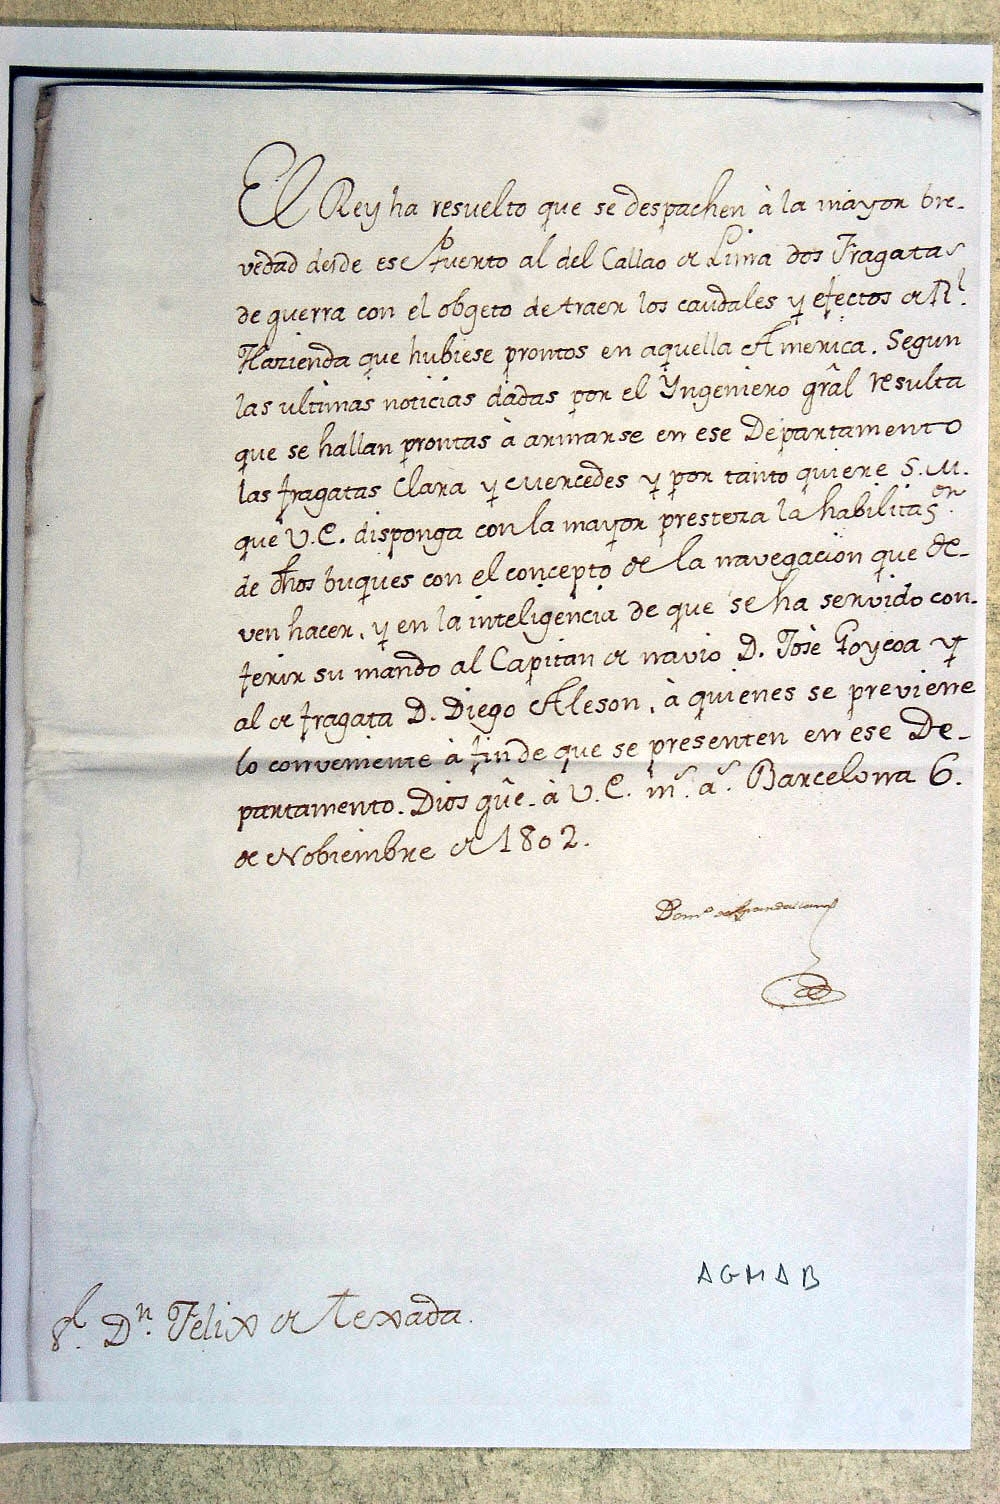 El Rey ha resuelto que se despachen à la mayor bre-
vedad desde ese Puerto al del Callao de Lima dos Fragatas
de guerra con el obgeto de traer los caudales y efectos de Rl.
Hazienda que hubiese prontos en aquella America. Segun
las ultimas noticias dadas por el Yngeniero grâl resulta
que se hallan prontas à armarse en ese Departamento
las fragatas Clara y Mercedes y por tanto quiere S. M.
que V. E. disponga con la mayor presteza la habilitaçon.
de dhos buques con el concepto de la navegacion que de-
ven hacer, y en la inteligencia de que se ha servido con-
ferir su mando al Capitan de navio D. Josè Goycoa y
al de fragata D. Diego Aleson, à quienes se previene
lo conveniente à fin de que se presenten en ese De-
partamento. Dios gûe. à V. E. ms. as. Barcelona 6.
de Nobiembre de 1802.
Domo. de Grandallana
AGMAB
Dn. Felix de Texada.